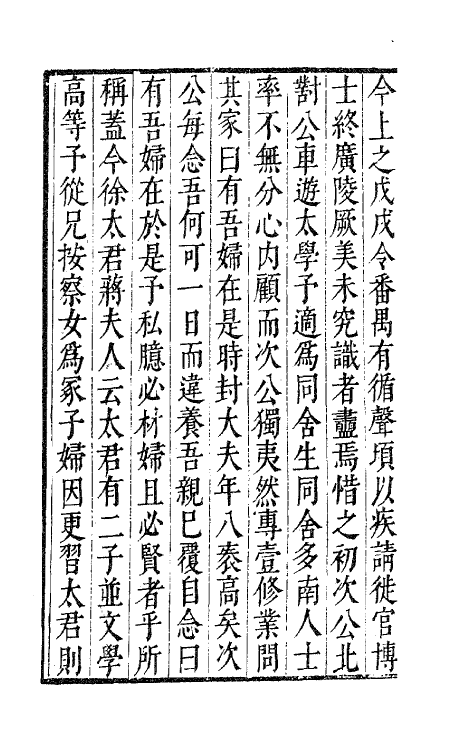 今上之戊戌令番禺有循聲項以疾請徙官博
士終廣陵厥美未究識者盡焉惜之初次公北
對公車遊太學予適爲同舍生同舍多南人士
率不無分心内顧而次公獨夷然專壹修業問
其家曰有吾婦在是時封大夫年八袠高矣次
公每念吾何可一日而違養吾親已覆自念曰
有吾婦在於是予私臆必材婦且必賢者乎所
稱蓋今徐太君蔣夫人云太君有二子並文學
高等子從兄按察女爲冢子婦因更習太君則